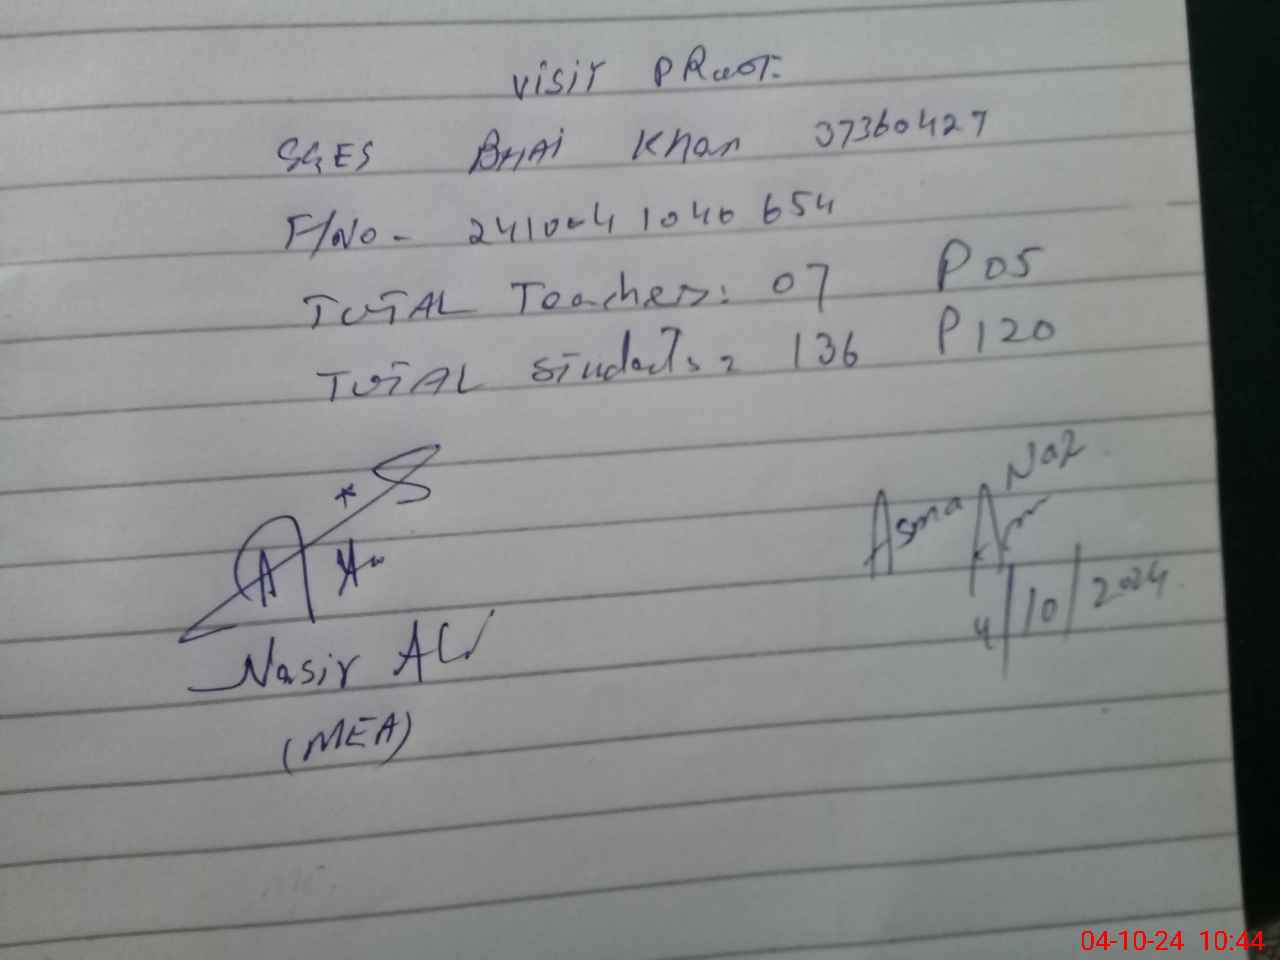 Visit PRoof.
SGES BHAI Khan 37360427
F/No - 241004 1040 654
TOTAL Teachers: 07 P 05
TOTAL Students: 136 P 120
Asma Naz
4/10/2024
Nasir Ali
(MEA)
04-10-24 10:44